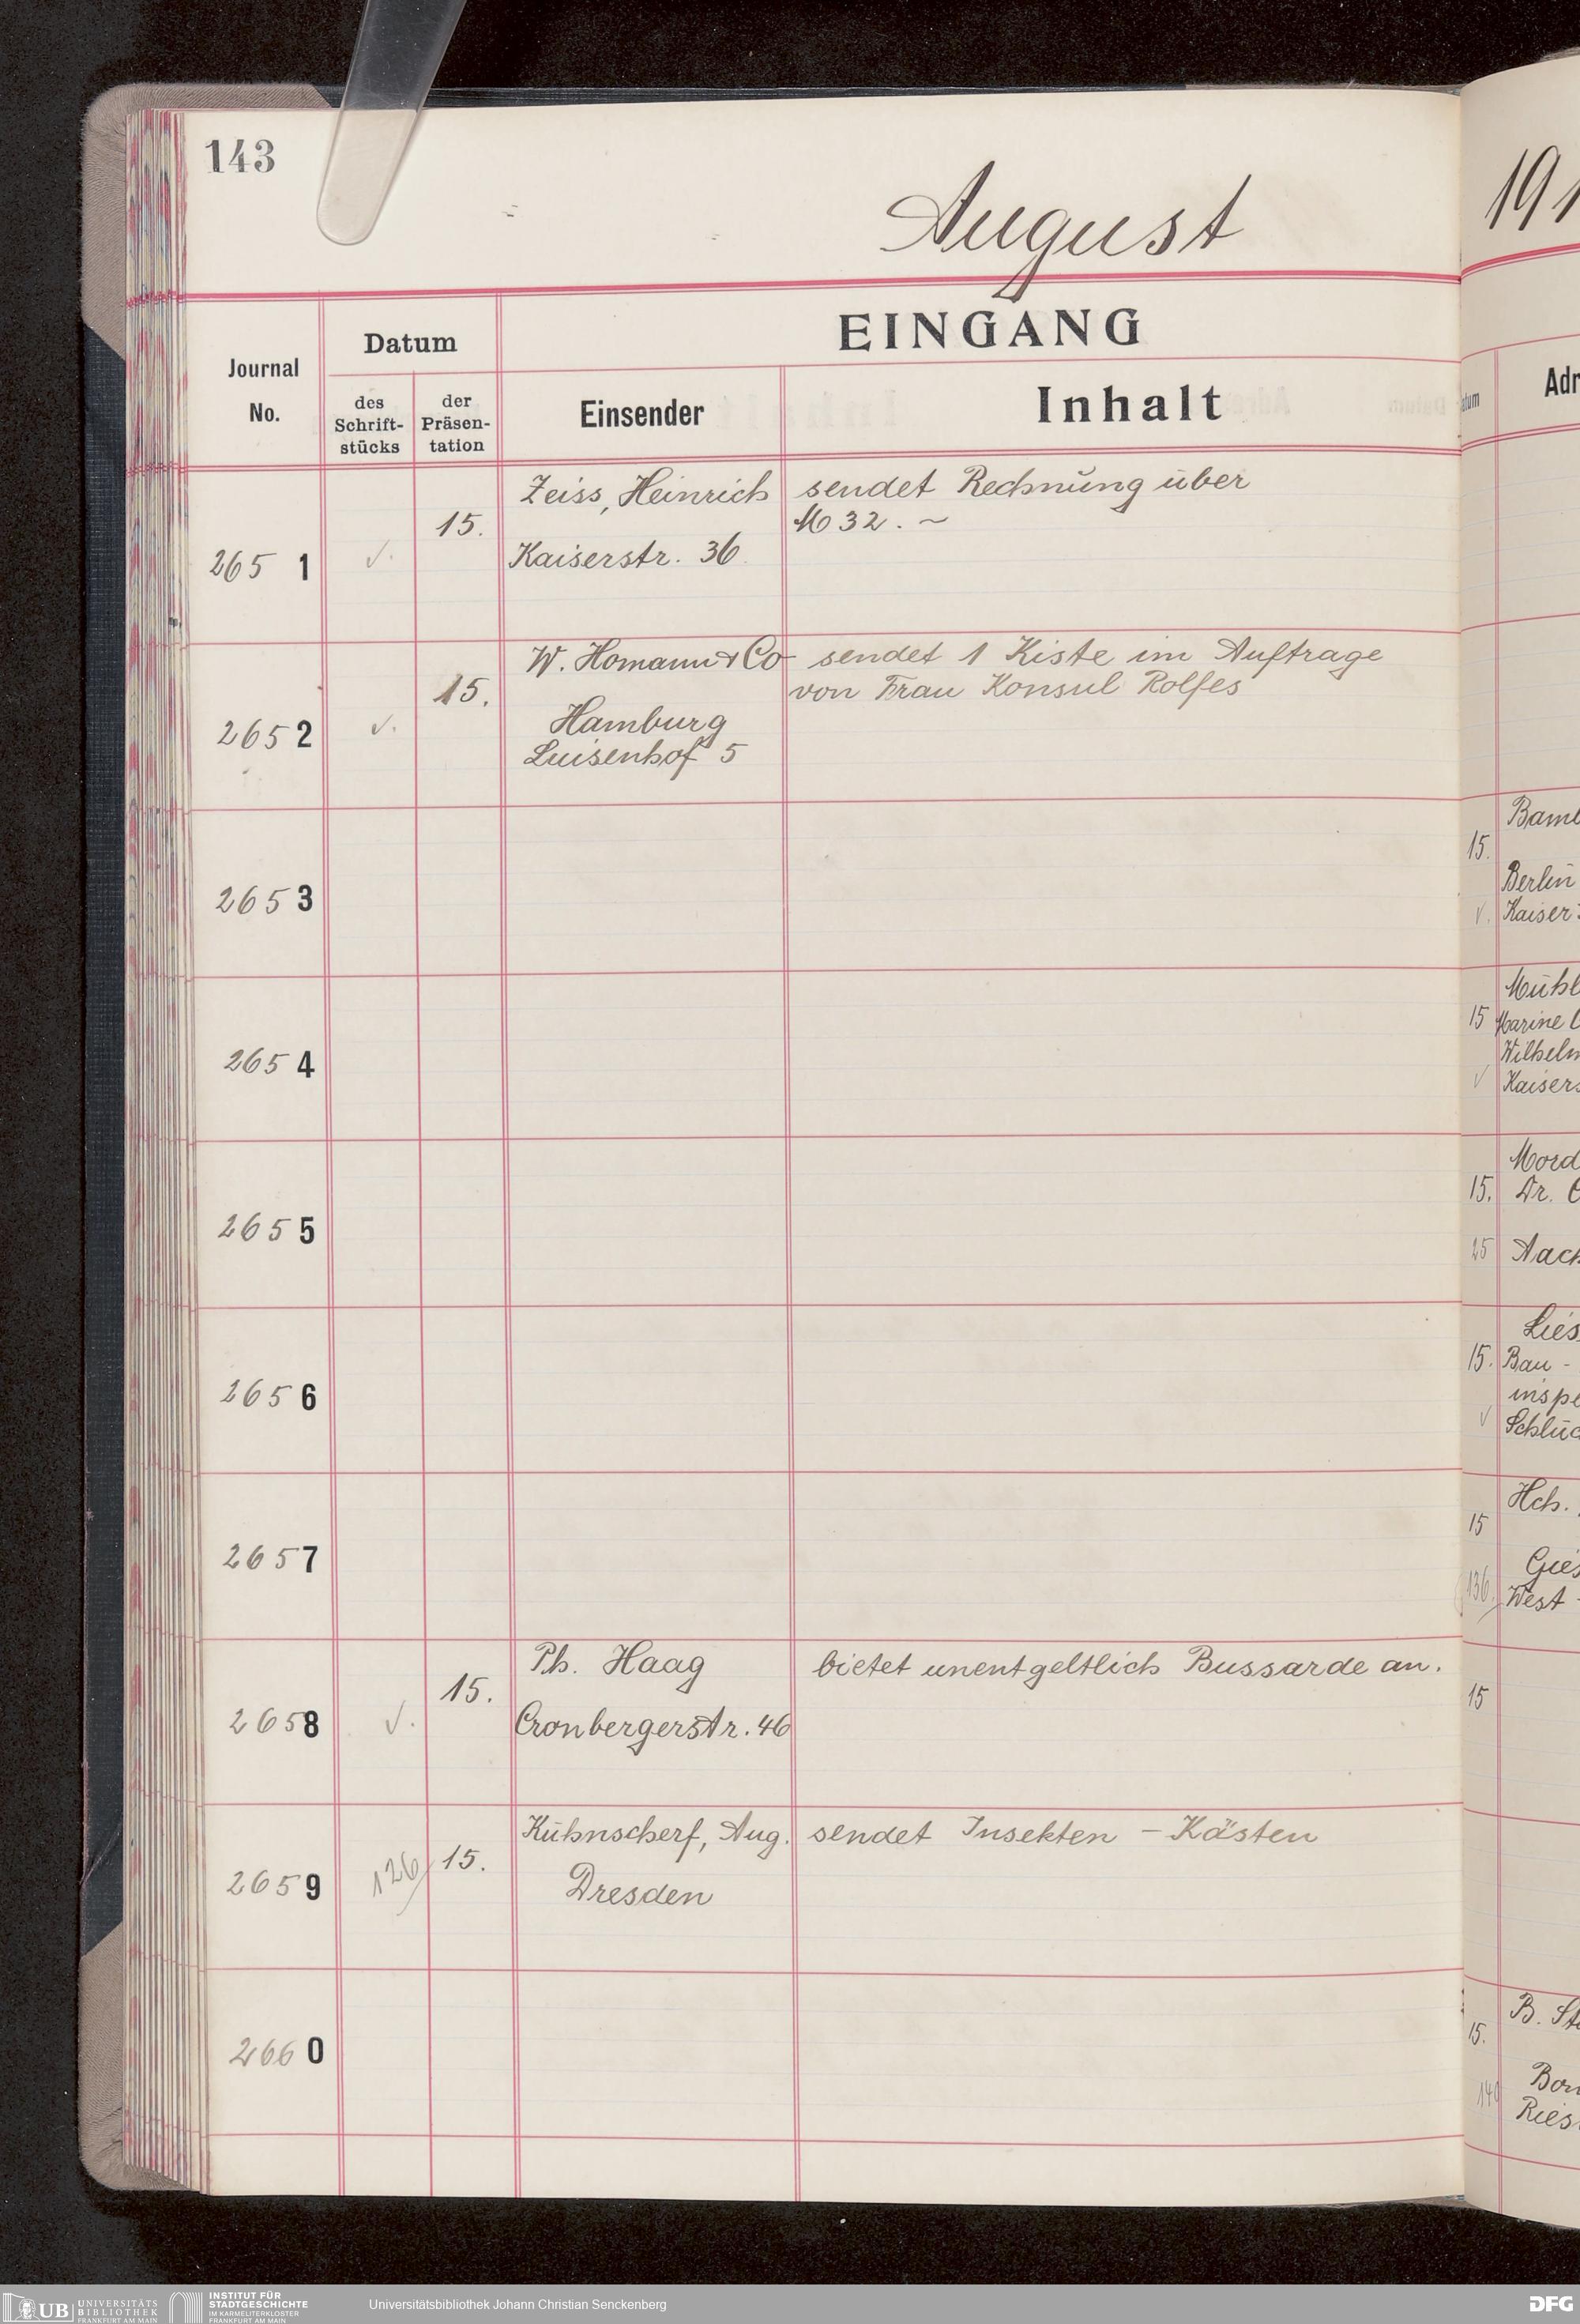 143
August
191
EINGANG
Journal
No.
Datum
des
Schrift-
stücks
der
Präsen-
tation
Einsender
Inhalt
Adr
2651
✓.
15.
Zeiss, Heinrich
Kaiserstr. 36
sendet Rechnung über
M 32. ~
2652
✓.
15.
W. Homann & Co
Hamburg
Luisenhof 5
sendet 1 Kiste im Auftrage
von Frau Konsul Rolfes
2653
2654
2655
2656
2657
2658
✓.
15.
Ph. Haag
Cronbergerstr. 46
bietet unentgeltlich Bussarde an.
2659
126/
15.
Kühnscherf, Aug.
Dresden
sendet Insekten - Kästen
2660
15.
Berlin
✓. Kaiser
15 Marine
Wilhelm
✓ Kaisers
15. Dr.
25 Aach
15. Bau -
inspe
✓
Hch.
15
136
West -
15
B. St
15.
140
UB UNIVERSITÄTS
BIBLIOTHEK
FRANKFURT AM MAIN
INSTITUT FÜR
STADTGESCHICHTE
IM KARMELITERKLOSTER
FRANKFURT AM MAIN
Universitätsbibliothek Johann Christian Senckenberg
DFG